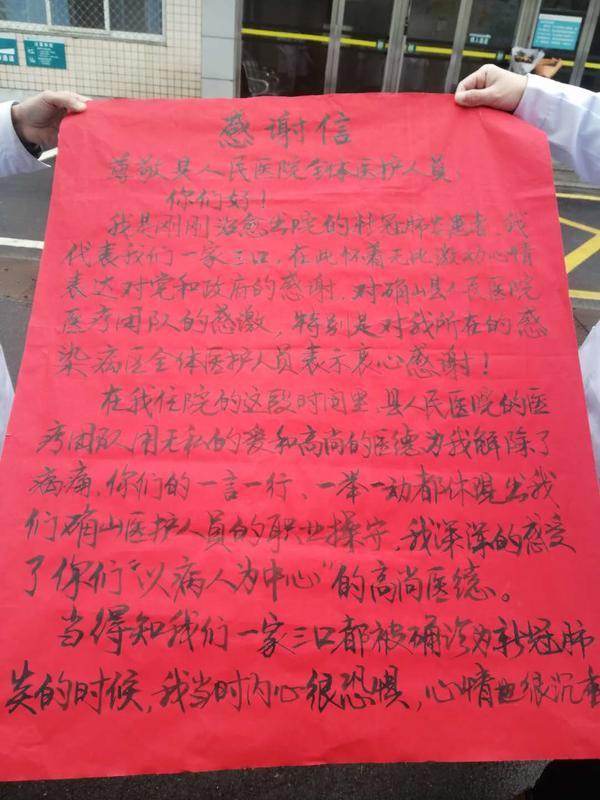 感谢信
尊敬县人民医院全体医护人员:
你们好!
我是刚刚治愈出院的新冠肺炎患者,我
代表我们一家三口,在此怀着无比激动心情
表达对党和政府的感谢,对确山县人民医院
医疗团队的感激,特别是对我所在的感
染病区全体医护人员表示衷心感谢!
在我住院的这段时间里,县人民医院的医
疗团队用无私的爱和高尚的医德为我解除了
病痛,你们的一言一行、一举一动都体现出我
们确山医护人员的职业操守,我深深的感受
了你们“以病人为中心”的高尚医德。
当得知我们一家三口都被确诊为新冠肺
炎的时候,我当时内心很恐惧,心情也很沉重